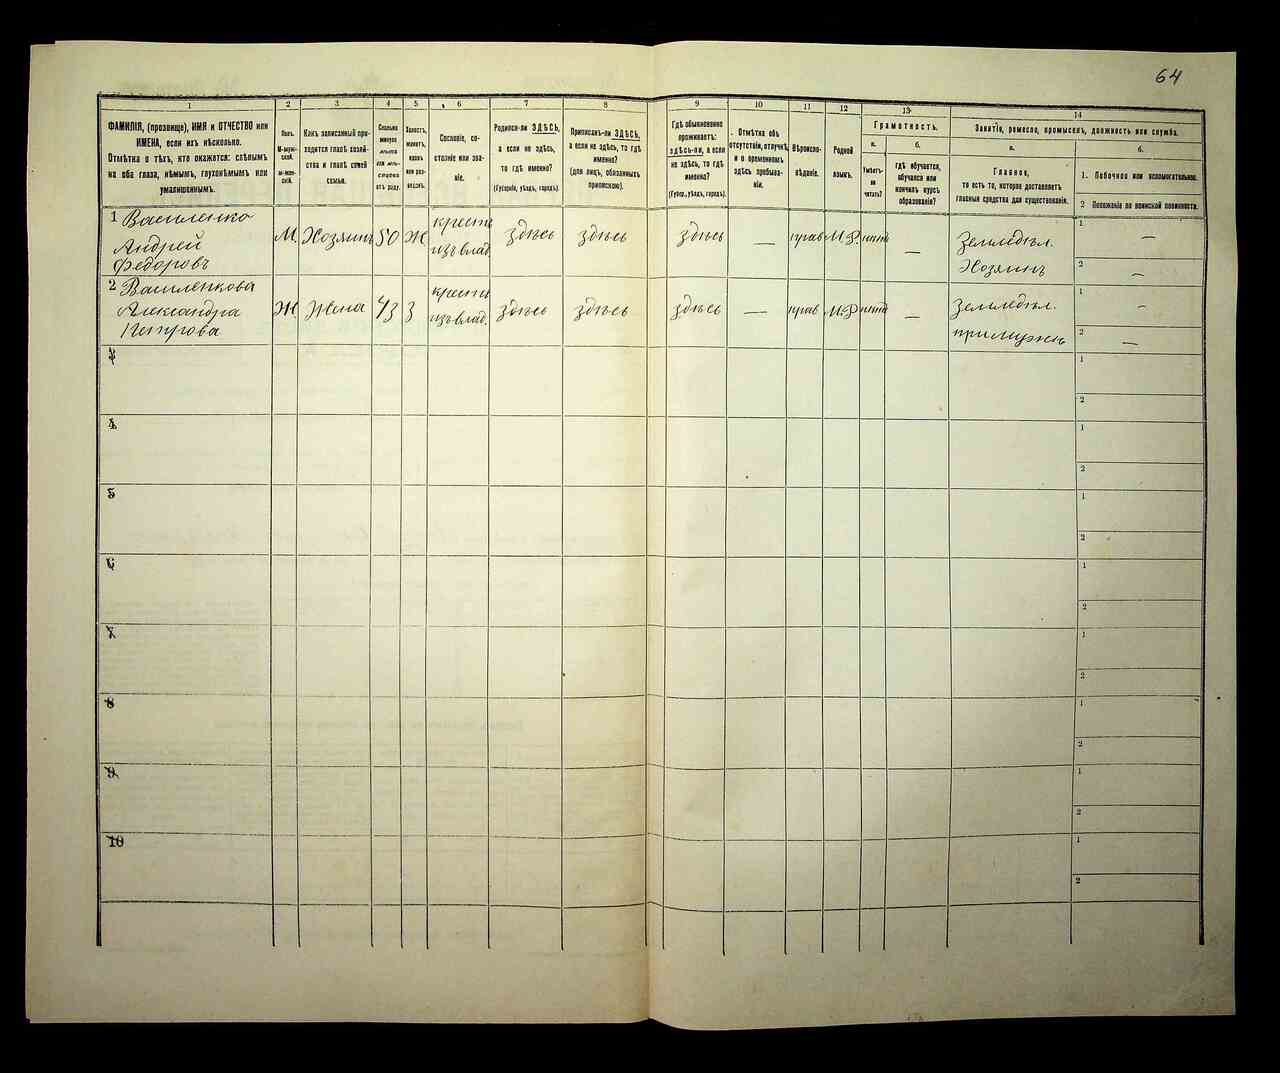 64
1 2 3 4 5 6 7 8 9 10 11 12 13 14
ФАМИЛІЯ, (прозвище), ИМЯ и ОТЧЕСТВО или
ИМЕНА, если ихъ нѣсколько.
Отмѣтка о тѣхъ, кто окажется: слѣпымъ
на оба глаза, нѣмымъ, глухонѣмымъ или
умалишеннымъ.
Полъ.
М-муж-
ской.
ж-жен-
скій.
Какъ записанный при-
ходится главѣ хозяй-
ства и главѣ своей
семьи.
Сколько
минуло
лѣтъ
или мѣ-
сяцевъ
отъ роду.
Холостъ,
женатъ,
вдовъ
или раз-
веденъ.
Сословіе, со-
стояніе или зва-
ніе.
Родился-ли ЗДѢСЬ,
а если не здѣсь,
то гдѣ именно?
(Губернія, уѣздъ, городъ).
Приписанъ-ли ЗДѢСЬ,
а если не здѣсь, то гдѣ
именно?
(для лицъ, обязанныхъ
припискою).
Гдѣ обыкновенно
проживаетъ:
здѣсь-ли, а если
не здѣсь, то гдѣ
именно?
(Губер., уѣздъ, городъ).
Отмѣтка объ
отсутствіи, отлучкѣ
и о временномъ
здѣсь пребыва-
ніи.
Вѣроиспо-
вѣданіе.
Родной
языкъ.
Грамотность.
а. б.
Умѣетъ-
ли
читать?
гдѣ обучается,
обучался или
кончилъ курсъ
образованія?
Занятія, ремесло, промыселъ, должность или служба.
а. б.
Главное,
то есть то, которое доставляетъ
главныя средства для существованія.
1. Побочное или вспомогательное.
2 Положеніе по воинской повинности.
1 Василенко
Андрей
Федоровъ
М. Хозяинъ 50 Ж
крест
изъ влад.
здѣсь здѣсь здѣсь — прав М.Р. —
Земледѣл.
Хозяинъ
1 —
2 —
2 Василенкова
Александра
Петрова
Ж Жена 43 З
крест
изъ влад.
здѣсь здѣсь здѣсь — прав М.Р —
Земледѣл.
при мужѣ
1 —
2 —
3
1
2
4
1
2
5
1
2
6
1
2
7
1
2
8
1
2
9
1
2
10
1
2